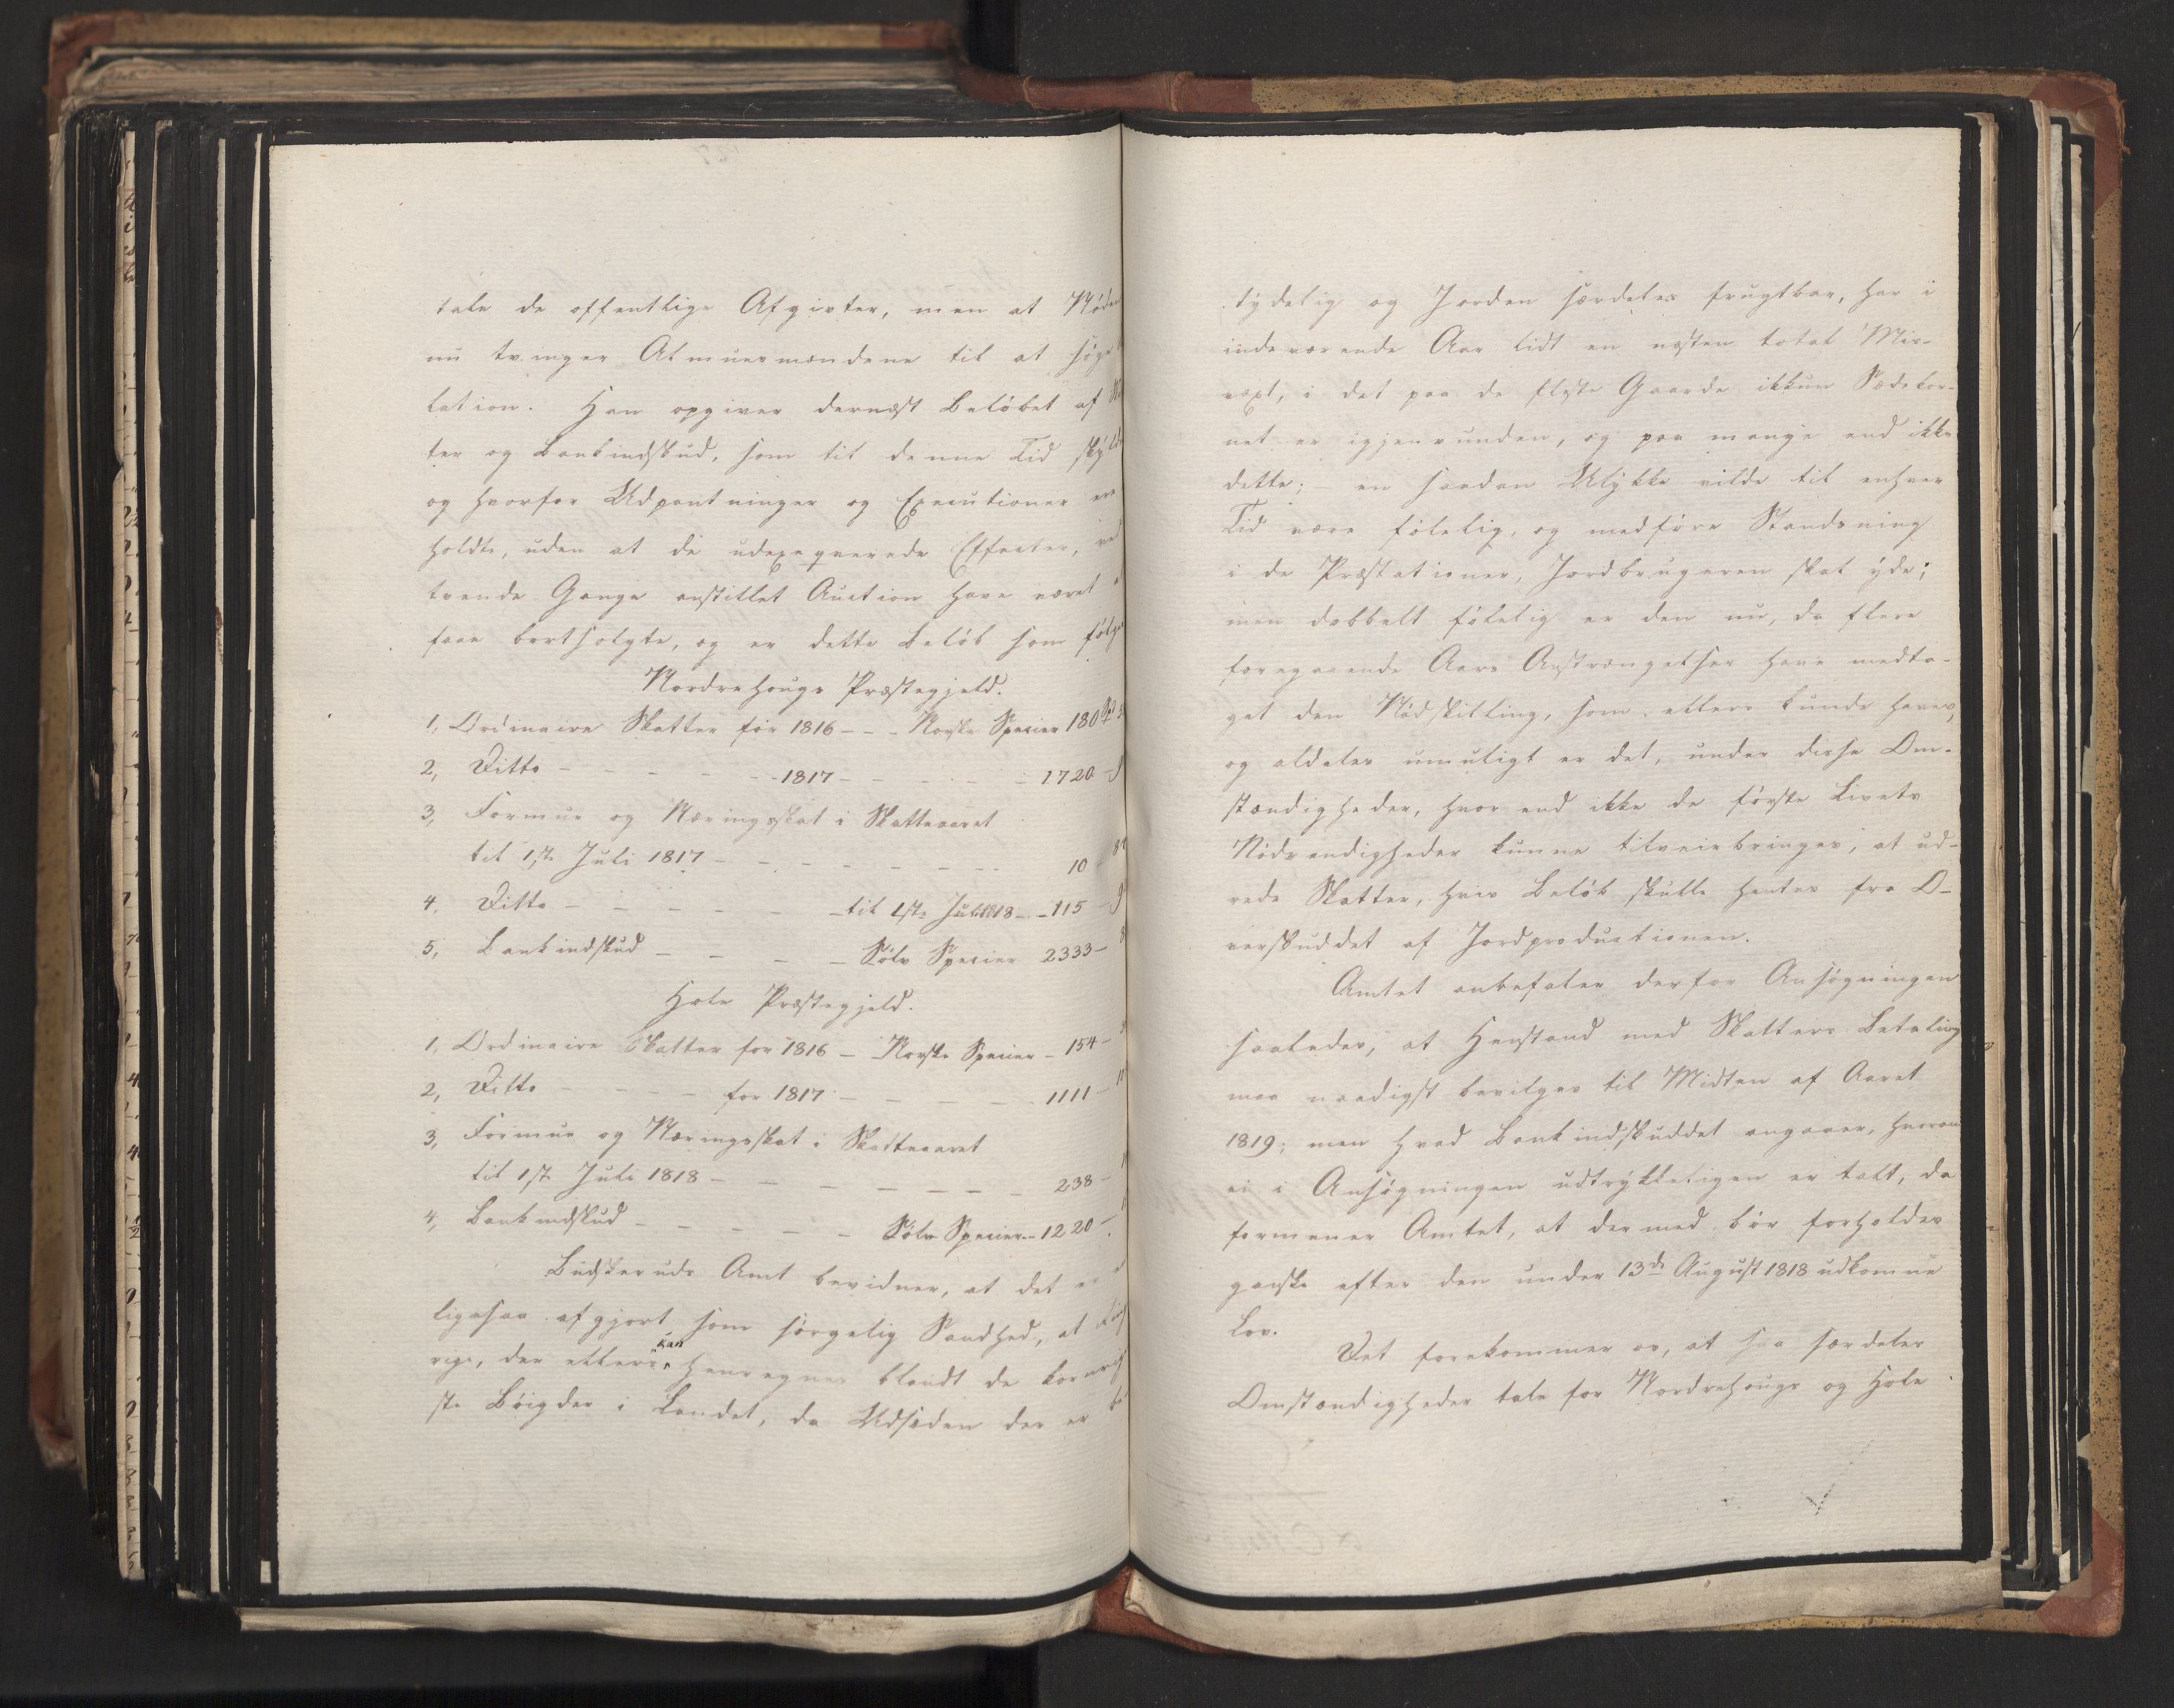 tale de offentlige Afgivter, men at Nøden
nu tvinger Almuesmændene til at søge
lation. Han opgiver dernæst Beløbet af
ter og Bankindskud, som til denne Tid skyldes
og hvorfor Udpantninger og Executioner ere
holdte, uden at de udexeqverede Effecter, ved
tvende Gange anstillet Auction have været at
faae bortsolgte, og er dette Beløb som følger
Nordrehougs Præstegjeld.
1, Ordinaire Skatter for 1816 - - - Norske Specier 180
2, Ditto - - - - - 1817 - - - - - 1720 -
3, Formue og Næringsskat i Skatteaaret
til 1ste Juli 1817 - - - - - - 10 -
4, Ditto - - - - - til 1ste Juli 1818 - - 115 -
5, Bankindskud - - - - Sølv Specier 2333 -
Hole Præstegjeld.
1, Ordinaire Skatter for 1816 - Norske Specier - 154 -
2, Ditto - - - - for 1817 - - - - - 1111 -
3, Formue og Næringsskat i Skatteaaret
til 1ste Juli 1818 - - - - - - - 238 -
4, Bankindskud - - - - - Sølv Specier - 1220 -
Budskeruds Amt bevidner, at det er
ligesaa afgjort som sørgelig Sandhed, at Ring
rige, der ellers kan henregnes blandt de kornrig
ste Bøigder i Landet, da Udsæden der er be
tydelig og Jorden særdeles frugtbar, har i
indeværende Aar lidt en næsten total Mis-
væxt, i det paa de fleste Gaarde ikkun Sædekor-
net er igjenvunden, og paa mange end ikke
dette; - en saadan Ulykke vilde til enhver
Tid være følelig, og medføre Standsning
i de Præstationer, Jordbrugeren skal yde;
men dobbelt følelig er den nu, da flere
foregaaende Aars Anstrængelser have medta-
get den Nødskilling, som ellers kunde haves,
og aldeles umuligt er det, under disse Om-
stændigheder, hvor end ikke de første Livets
Nødvendigheder kunne tilveiebringes, at ud-
rede Skatter, hvis Beløb skulle hentes fra O-
verskuddet af Jordproductionen.
Amtet anbefaler derfor Ansøgningen
saaledes, at Henstand med Skatters Betaling
maa naadigst bevilges til Midten af Aaret
1819; men hvad Bankindskuddet angaaer, hvorom
ei i Ansøgningen udtrykkeligen er talt, da
formener Amtet, at dermed bør forholdes
ganske efter den under 13de August 1818 udkomne
Lov.
Det forekommer os, at saa særdeles
Omstændigheder tale for Nordrehougs og Hole